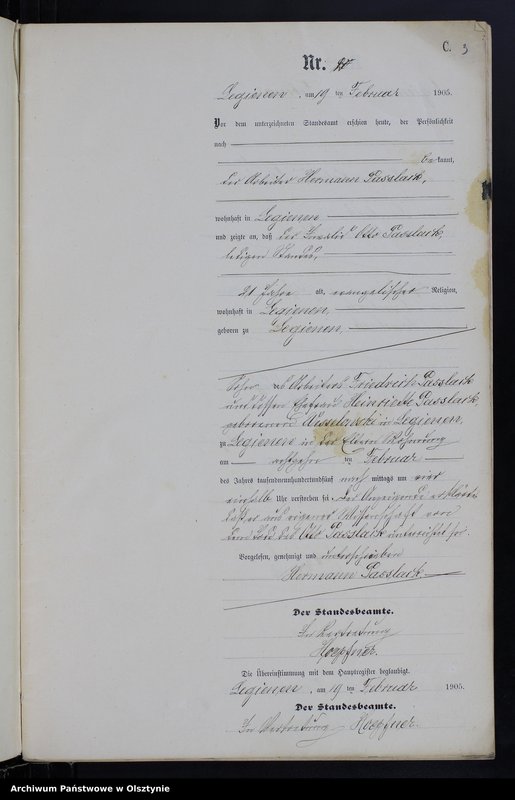 C. 3
Nr.
Legienen, am 19 ten Februar 1905.
Vor dem unterzeichneten Standesamt erschien heute, der Persönlichkeit
nach
bekannt,
der Arbeiter Hermann Passlack,
wohnhaft in Legienen
und zeigte an, daß der Invalid Otto Passlack,
ledigen Standes,
21 Jahre alt, evangelischer Religion,
wohnhaft in Legienen,
geboren zu Legienen,
Sohn des Arbeiters Friedrich Passlack
und dessen Ehefrau Heinriette Passlack,
geborenen in Legienen,
zu Legienen in der Eltern Wohnung
am achtzehn ten Februar
des Jahres tausendneunhundertundfünf nach mittags um vier
einhalb Uhr verstorben sei. Der Anzeigende erklärte
daß er aus eigener Wissenschaft von
dem Tod des Otto Passlack unterrichtet sei.
Vorgelesen, genehmigt und unterschrieben
Hermann Passlack.
Der Standesbeamte.
In Vertretung
Hoepfner.
Die Übereinstimmung mit dem Hauptregister beglaubigt.
Legienen, am 19 ten Februar 1905.
Der Standesbeamte.
In Vertretung Hoepfner.
Archiwum Państwowe w Olsztynie